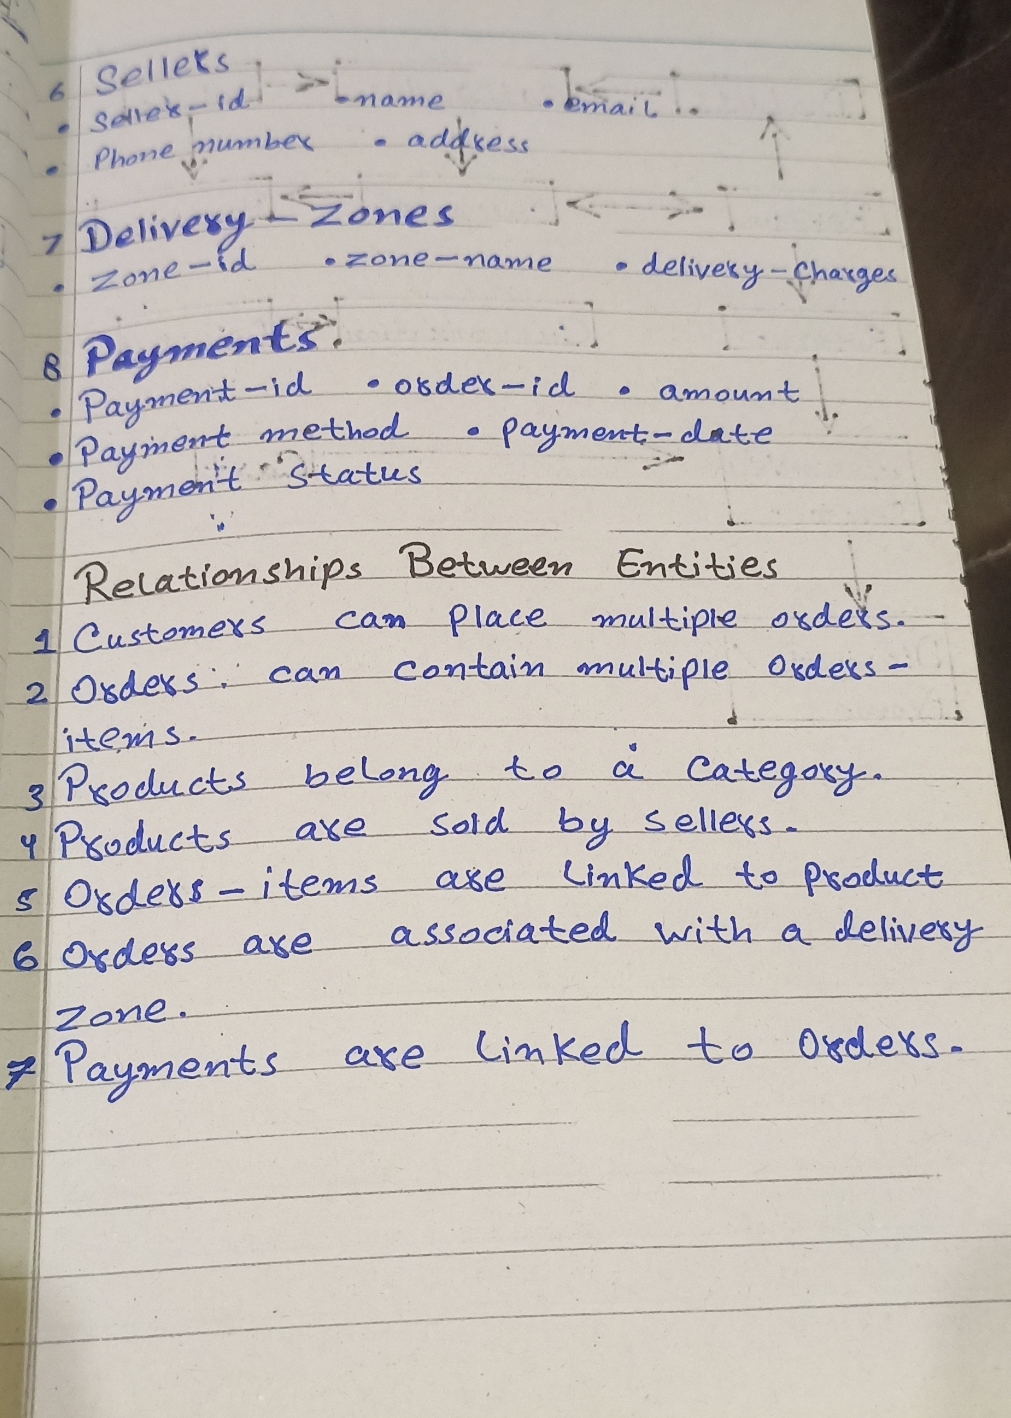 6 Sellers
• Seller-id • name • email
• Phone number • address
7 Delivery-Zones
• Zone-id • zone-name • delivery-charges
8 Payments.
• Payment-id • order-id • amount
• Payment method • payment-date
• Payment Status
Relationships Between Entities
1 Customers can place multiple orders.
2 Orders can contain multiple Orders-
items.
3 Products belong to a Category.
4 Products are sold by sellers.
5 Orders-items are linked to product
6 Orders are associated with a delivery
zone.
7 Payments are linked to Orders.